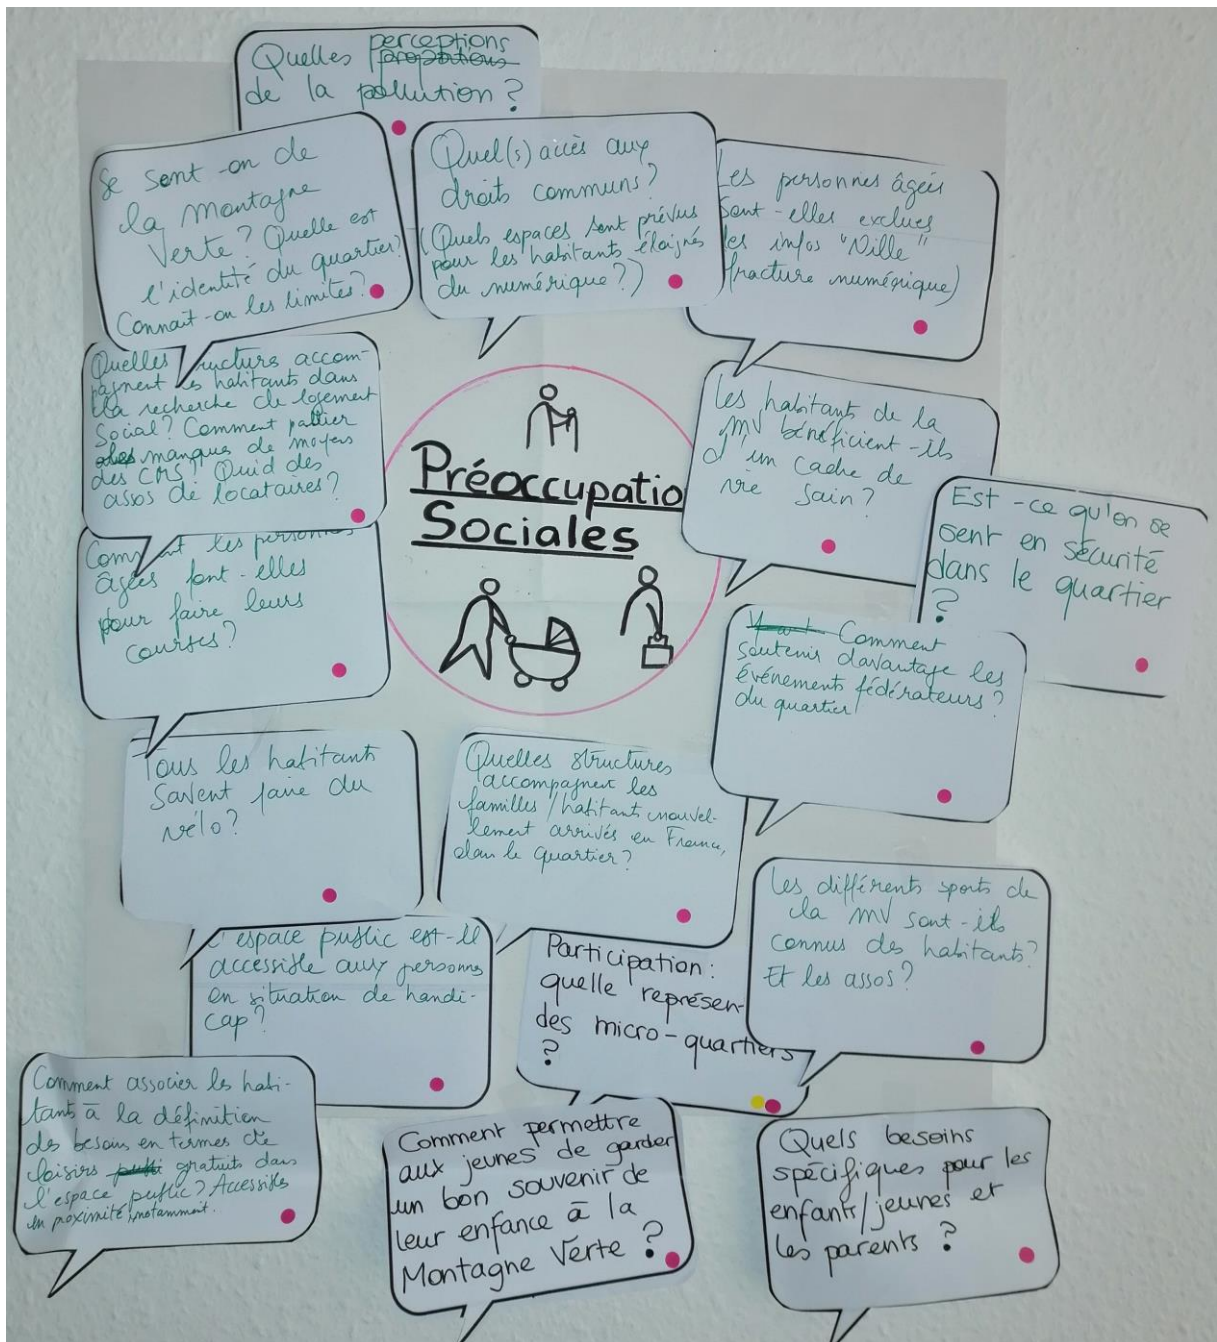 Quelles perceptions
propositions
de la pollution ?
Se sent-on de
la montagne
Verte ? Quelle est
l'identité du quartier ?
Connait-on les limites ?
Quel(s) accès aux
droits communs ?
(Quels espaces sont prévus
pour les habitants éloignés
du numérique ?)
Les personnes âgées
sont-elles exclues
des infos "Ville"
fracture numérique)
Quelles structures accom-
pagnent les habitants dans
la recherche de logement
Social ? Comment pallier
manque de moyens
des CMS ? Quid des
assos de locataires ?
Préoccupatio
Sociales
Les habitants de la
MV bénéficient-ils
d'un cadre de
vie sain ?
Est-ce qu'on se
sent en sécurité
dans le quartier
?
Comment les personnes
âgées font-elles
pour faire leurs
courses ?
Comment
soutenir davantage les
événements fédérateurs ?
du quartier
Tous les habitants
savent faire du
vélo ?
Quelles structures
accompagnent les
familles / habitants nouvel-
lement arrivés en France,
dans le quartier ?
Les différents sports de
la MV sont-ils
connus des habitants ?
Et les assos ?
L'espace public est-il
accessible aux personnes
en situation de handi-
cap ?
Participation :
quelle représen-
des micro-quartiers
?
Comment associer les habi-
tants à la définition
des besoins en termes de
loisirs gratuits dans
l'espace public ? Accessibles
en proximité, notamment.
Comment permettre
aux jeunes de garder
un bon souvenir de
leur enfance à la
Montagne Verte ?
Quels besoins
spécifiques pour les
enfants/jeunes et
les parents ?